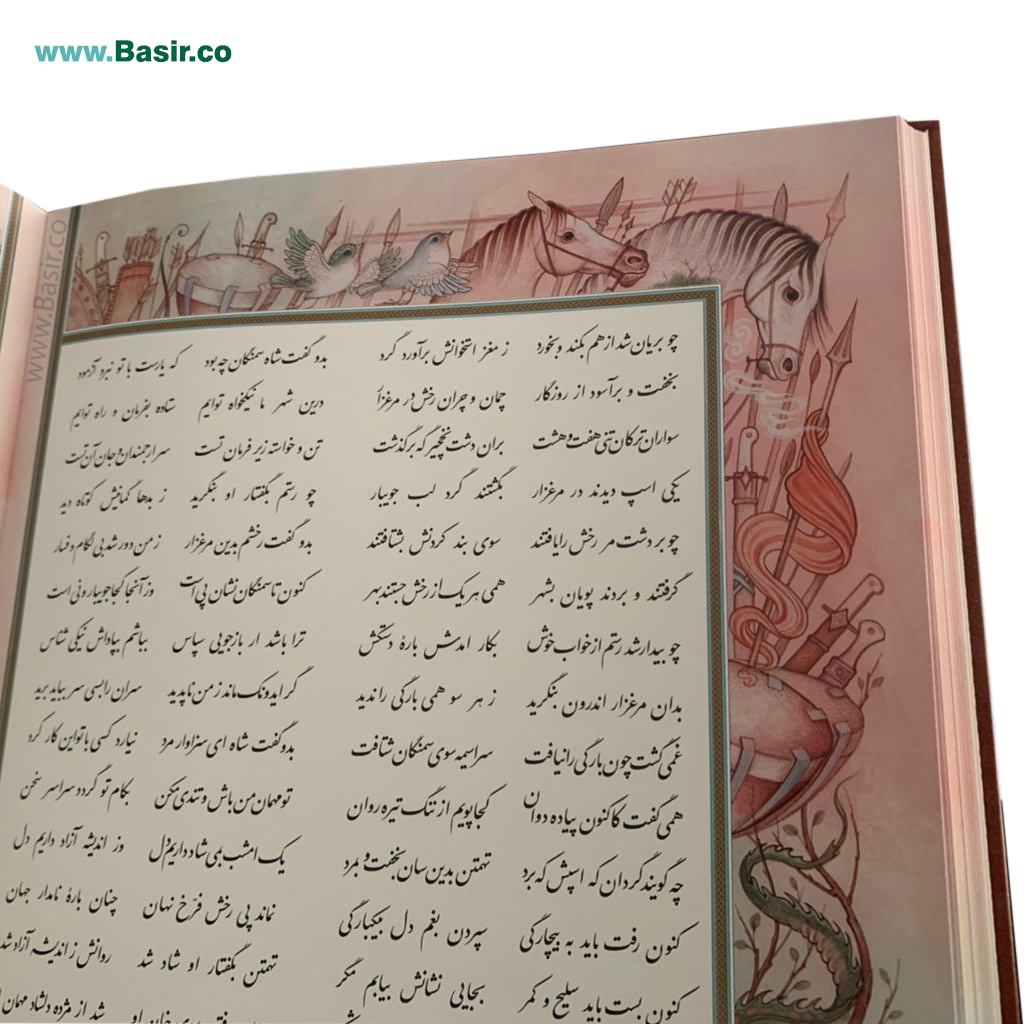 www.Basir.co
www.Basir.co
چو بریان شد از هم بکند و بخورد ز مغز استخوانش برآورد گرد
بخفت و برآسود از روزگار چمان و چران رخش در مرغزار
سواران ترکان تنی هفت و هشت بران دشت نخچیر گه برگذشت
یکی اسپ دیدند در مرغزار بگشتند گرد لب جویبار
چو بر دشت مر رخش را یافتند سوی بند کردنش بشتافتند
گرفتند و بردند پویان بشهر همی هر یک از رخش جستند بهر
چو بیدار شد رستم از خواب خوش بکار امدش بارهٔ دستکش
بدان مرغزار اندرون بنگرید ز هر سو همی بارگی را ندید
غمی گشت چون بارگی را نیافت سراسیمه سوی سمنگان شتافت
همی گفت کاکنون پیاده دوان کجا پویم از ننگ تیره روان
چه گویند گردان که اسپش که برد تهمتن بدین سان بخفت و بمرد
کنون رفت باید به بیچارگی سپردن بغم دل بیکبارگی
کنون بست باید سلیح و کمر بجایی نشانش بیابم مگر
بدو گفت شاه سمنگان چه بود که یارست با تو نبرد آزمود
درین شهر ما نیکخواه توایم ستاده بفرمان و راه توایم
تن و خواسته زیر فرمان تست سر ارجمندان و جان آن تست
چو رستم بگفتار او بنگرید ز بدها گمانیش کوتاه دید
بدو گفت رخشم بدین مرغزار ز من دور شد بی لگام و فسار
کنون تا سمنگان نشان پی است وز آنجا کجا جویبار و نی است
ترا باشد ار بازجویی سپاس بباشم بپاداش نیکی شناس
گر ایدونک ماند ز من ناپدید سران را بسی سر بباید برید
بدو گفت شاه ای سزاوار مرد نیارد کسی با تو این کار کرد
تو مهمان من باش و تندی مکن بکام تو گردد سراسر سخن
یک امشب بمی شاد داریم دل وز اندیشه آزاد داریم دل
نماند پی رخش فرّخ نهان چنان بارهٔ نامدار جهان
تهمتن بگفتار او شاد شد روانش ز اندیشه آزاد شد
شد از مژده دلشاد مهمان